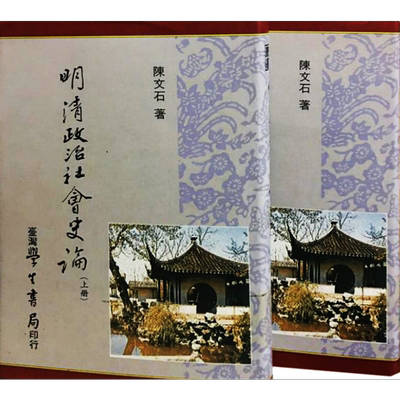 陳文石 著
明清政治社會史論(上册)
臺灣學生書局印行
陳文石 著